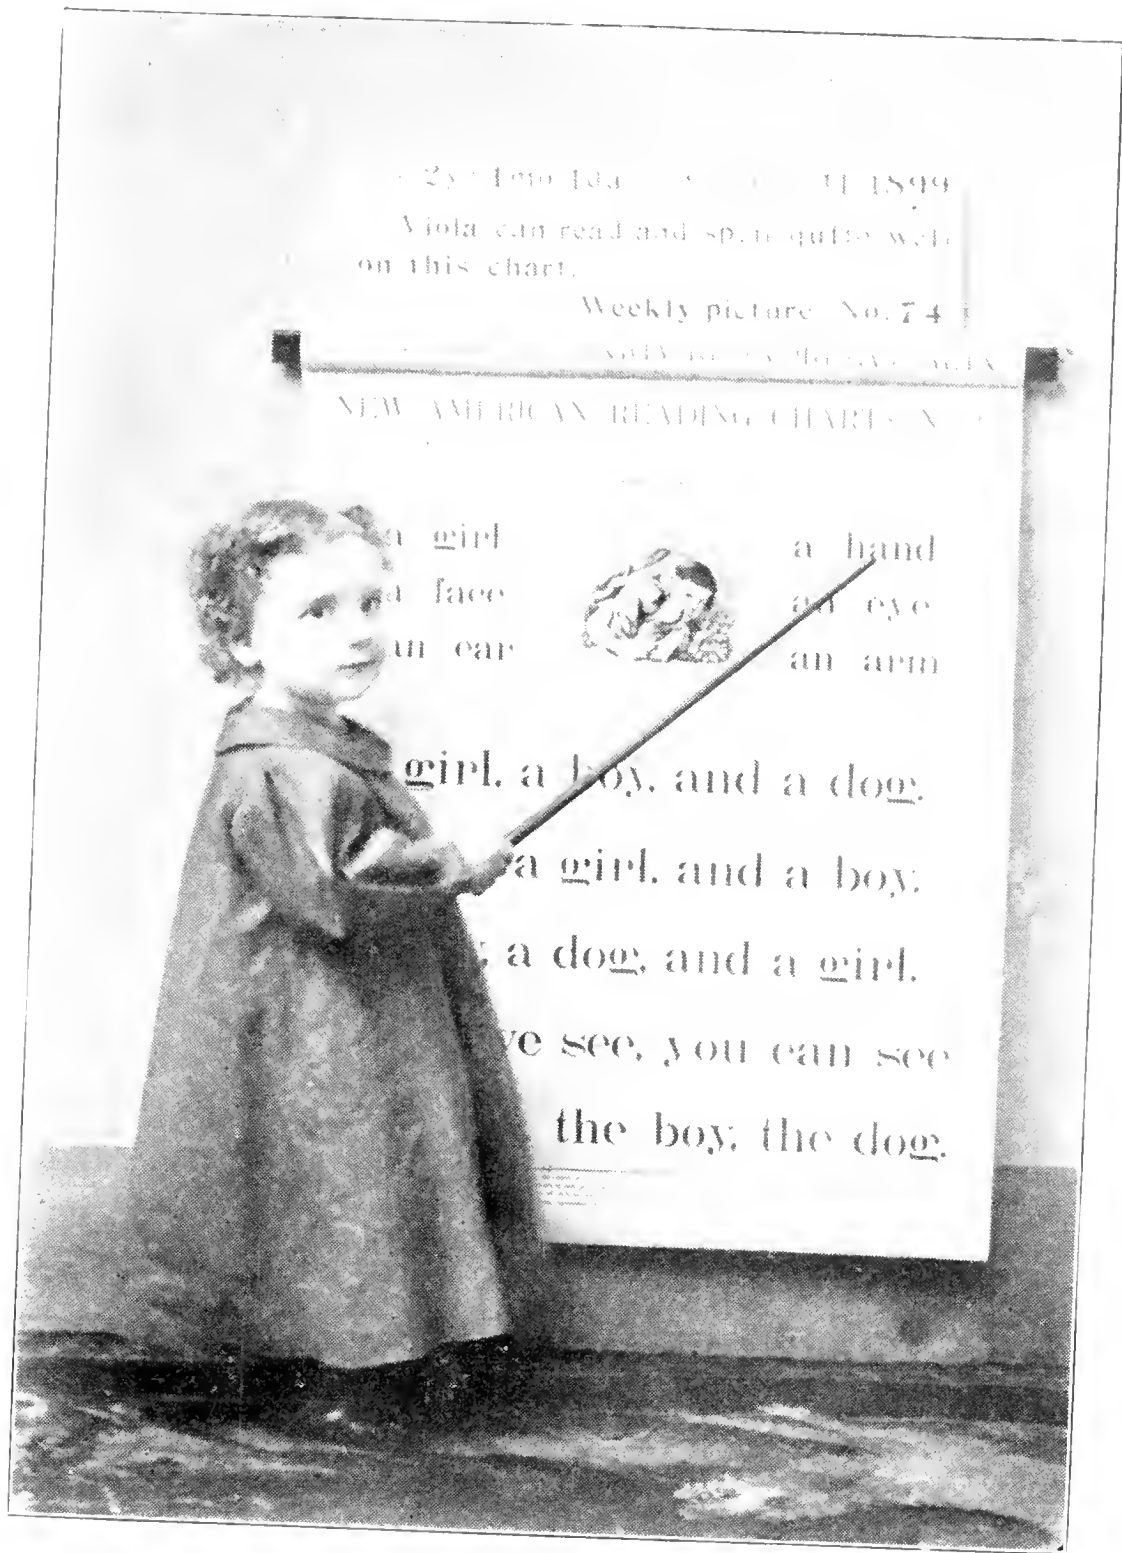 1899
Viola can read and spell quite well
on this chart.
Weekly picture No. 74
NEW AMERICAN READING CHARTS
a girl
a face
an ear
a hand
an eye
an arm
girl, a boy, and a dog.
a girl, and a boy.
a dog, and a girl.
see, you can see
the boy, the dog.